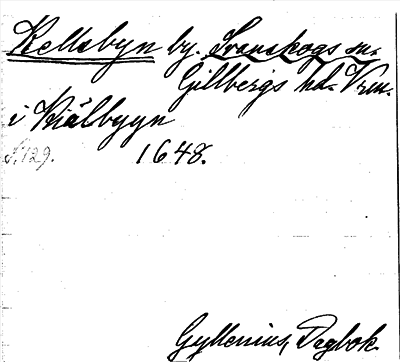 Kellsbyn by. Svanskogs sn.
Gillbergs hd. Vrm.
i Kiälbyyn
S. 129. 1648.
Gyllenius, Dagbok.